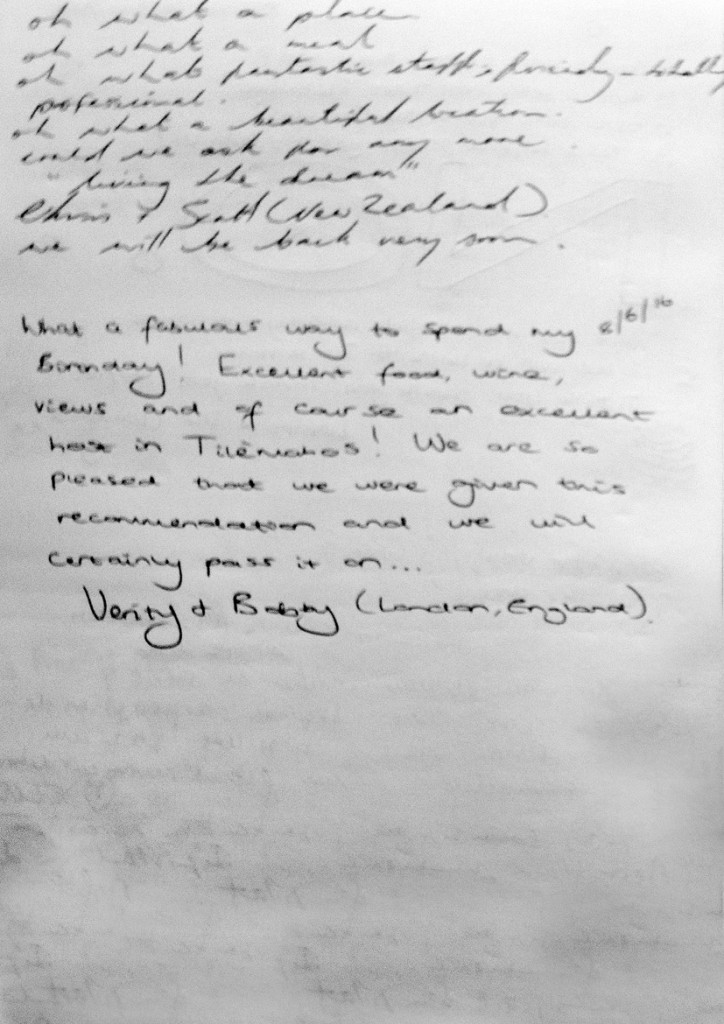 oh what a place
oh what a meal
oh what fantastic staff, friendly - totally
professional.
oh what a beautiful location.
could we ask for any more
"living the dream"
Chris + Scott (New Zealand)
we will be back very soon.
What a fabulous way to spend my 8/6/16
Birthday! Excellent food, wine,
views and of course an excellent
host in Tilémahos! We are so
pleased that we were given this
recommendation and we will
certainly pass it on...
Verity & Bobby (London, England).